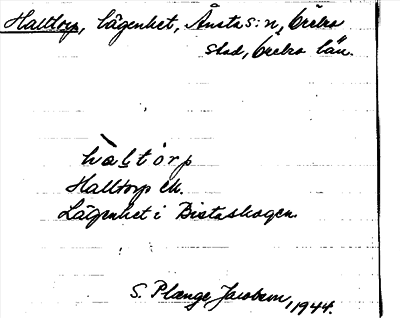 Halltorp, lägenhet, Ånsta s:n, Örebro
stad, Örebro län.
hàltórp
Halltorp ek.
Lägenhet i Bistaskogen.
S. Plænge Jacobson, 1944.